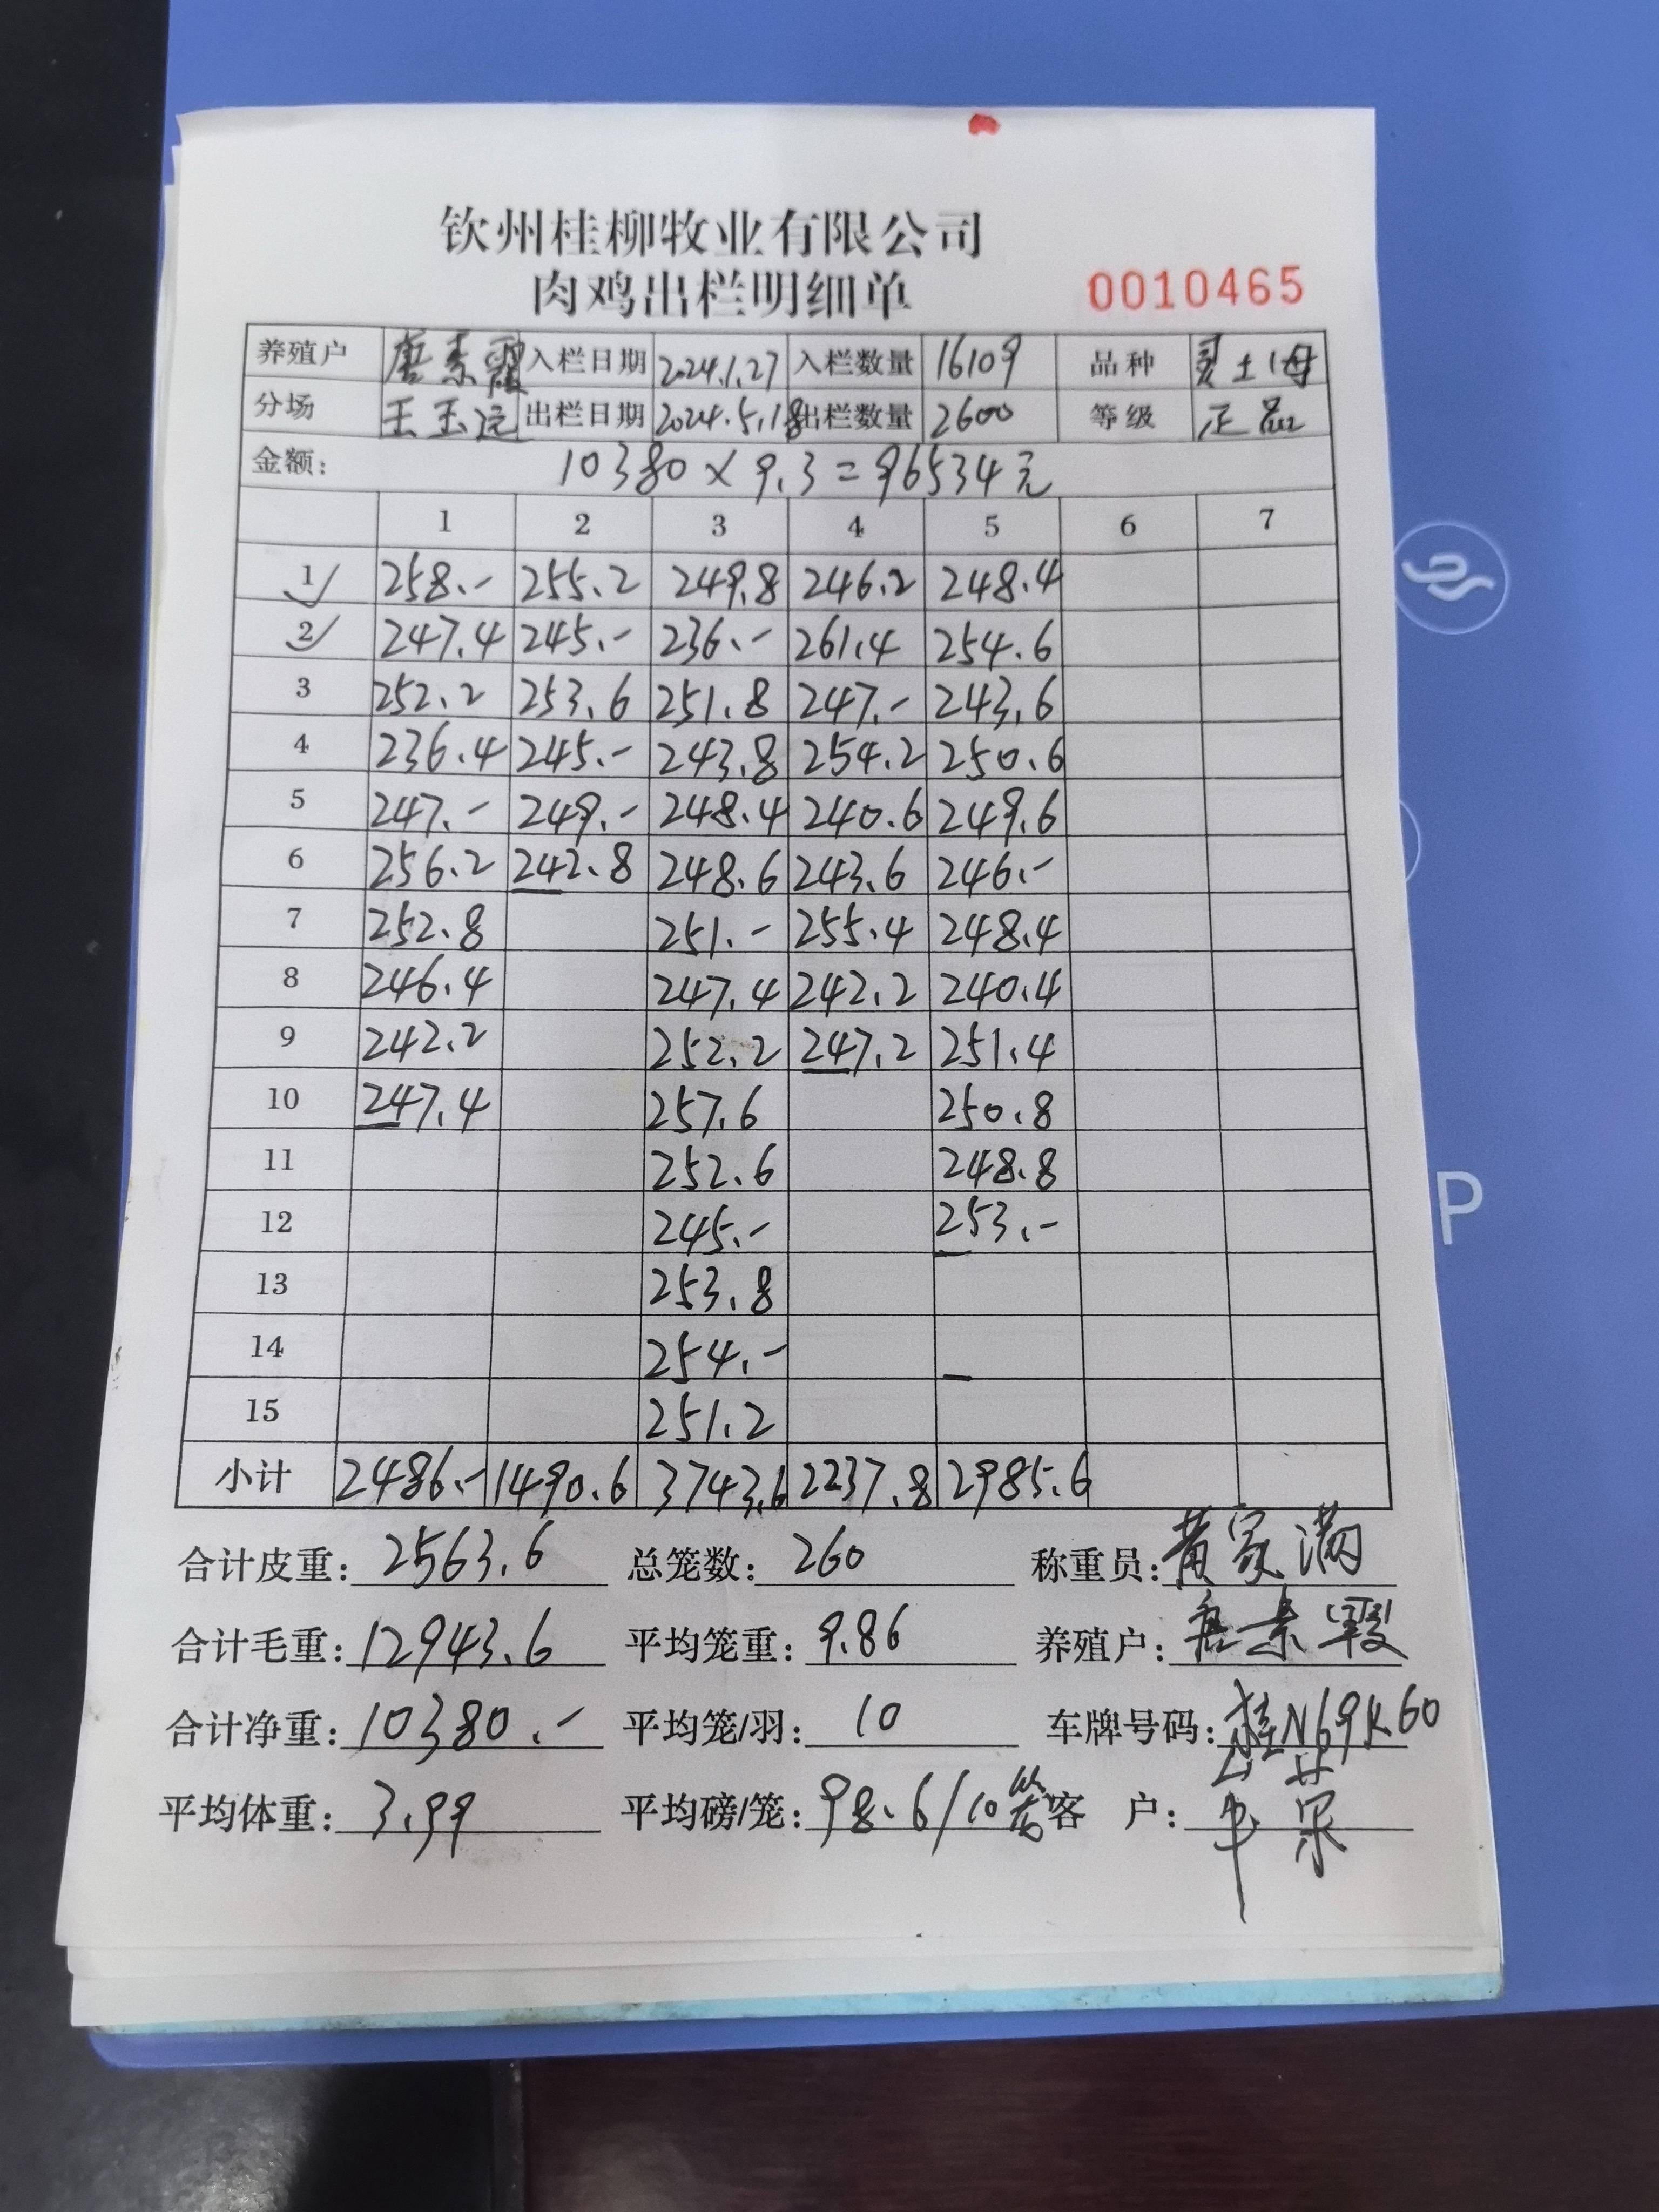 钦州桂柳牧业有限公司
肉鸡出栏明细单 0010465
养殖户 唐素霞 入栏日期 2024.1.27 入栏数量 16109 品种 灵土母
分场 王玉远 出栏日期 2024.5.18 出栏数量 2600 等级 正品
金额: 10380×9.3=96534元
1 2 3 4 5 6 7
1 258.- 255.2 249.8 246.2 248.4
2 247.4 245.- 236.- 261.4 254.6
3 252.2 253.6 251.8 247.- 243.6
4 236.4 245.- 243.8 254.2 250.6
5 247.- 249.- 248.4 240.6 249.6
6 256.2 242.8 248.6 243.6 246.-
7 252.8 251.- 255.4 248.4
8 246.4 247.4 242.2 240.4
9 242.2 252.2 247.2 251.4
10 247.4 257.6 250.8
11 252.6 248.8
12 245.- 253.-
13 253.8
14 254.-
15 251.2
小计 2486.- 1490.6 3743.6 2237.8 2985.6
合计皮重: 2563.6 总笼数: 260 称重员: 黄家满
合计毛重: 12943.6 平均笼重: 9.86 养殖户: 唐素霞
合计净重: 10380.- 平均笼/羽: 10 车牌号码: 桂N69K60
平均体重: 3.99 平均磅/笼: 98.6/10 客 户:
P